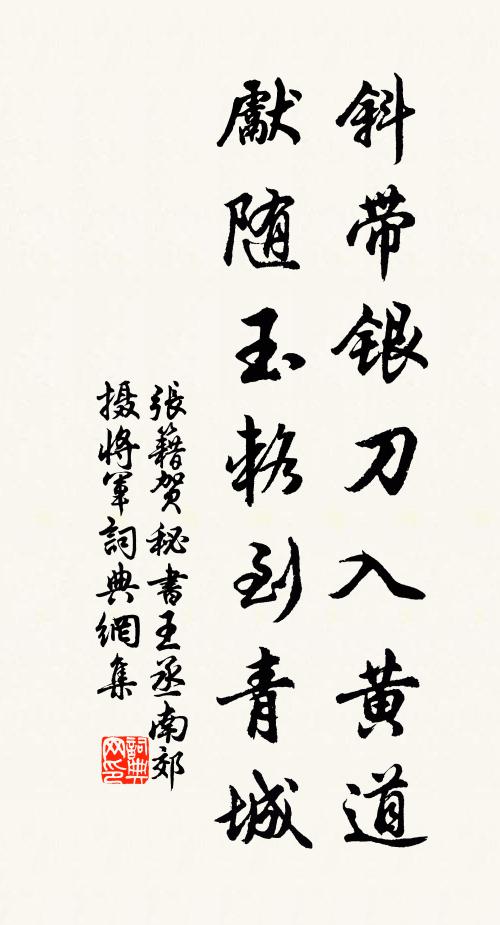 斜带银刀入黄道
獻随玉輅到青城
張籍贺秘書王丞南郊
摄将軍詞典網集
詞典网印